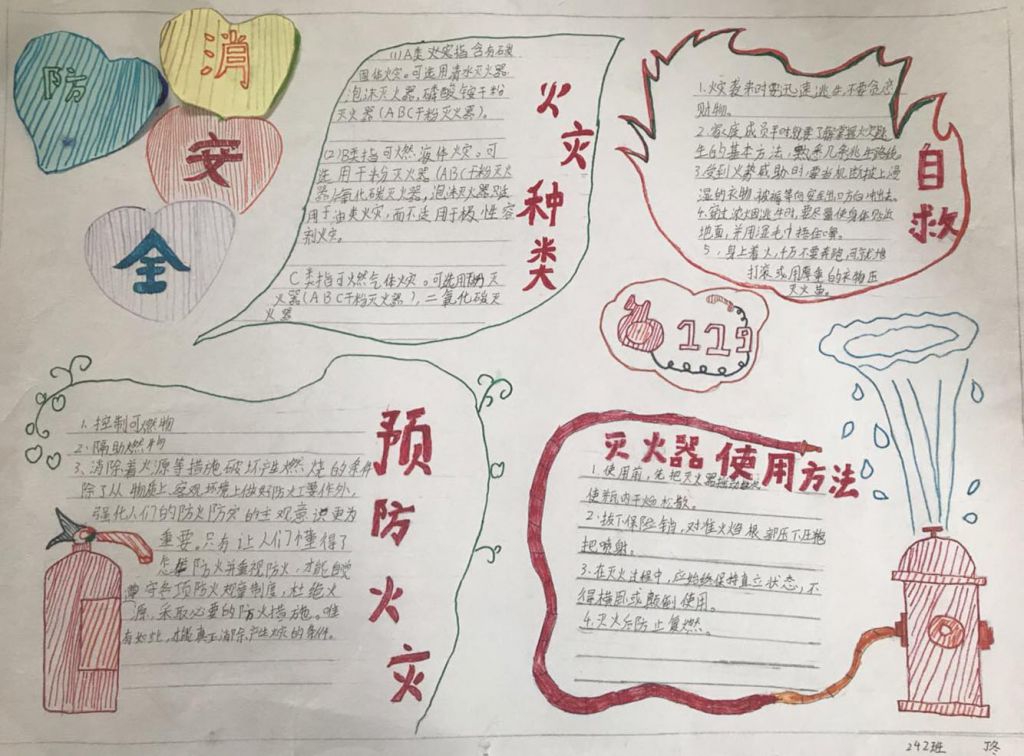 消
防
安
全
火灾种类
(1)A类火灾指含有碳
固体火灾。可选用清水灭火器
泡沫灭火器,磷酸铵干粉
灭火器(ABC干粉灭火器)。
(2)B类指可燃液体火灾。可
选用干粉灭火器(ABC干粉灭火
器)氧化碳灭火器,泡沫灭火器只适
用于油类火灾,而不适用于极性溶
剂火灾。
C类指可燃气体火灾。可选用
火器(ABC干粉灭火器),二氧化碳灭
火器
自救
1.火灾袭来时要迅速逃生,不要贪恋
财物。
2.家庭成员平时就要了解掌握火灾逃
生的基本方法,熟悉几条逃生路线。
3.受到火势威胁时,要当机立断披上浸
湿的衣物,被褥等向安全出口方向冲出去。
4.穿过浓烟逃生时,要尽量使身体贴近
地面,并用湿毛巾捂住口鼻。
5,身上着火,千万不要奔跑,可就地
打滚或用厚重的衣物压
灭火苗。
119
预防火灾
1.控制可燃物
2.隔助燃物
3、消除着火源等措施破坏产生燃烧的条件
除了从物质上,客观环境上做好防火工作外,
强化人们的防火防灾的主观意识更为
重要。只有让人们懂得了
怎样防火并重视防火,才能自觉
遵守各项防火规章制度,杜绝火
源,采取必要的防火措施。唯
有如此,才能真正消除产生火灾的条件。
灭火器使用方法
1.使用前,先把灭火器
使瓶内干粉松散。
2.拔下保险销,对准火焰根部压下压把
把喷射。
3.在灭火过程中,应始终保持直立状态,不
得横卧或颠倒使用。
4.灭火后防止复燃。
242班